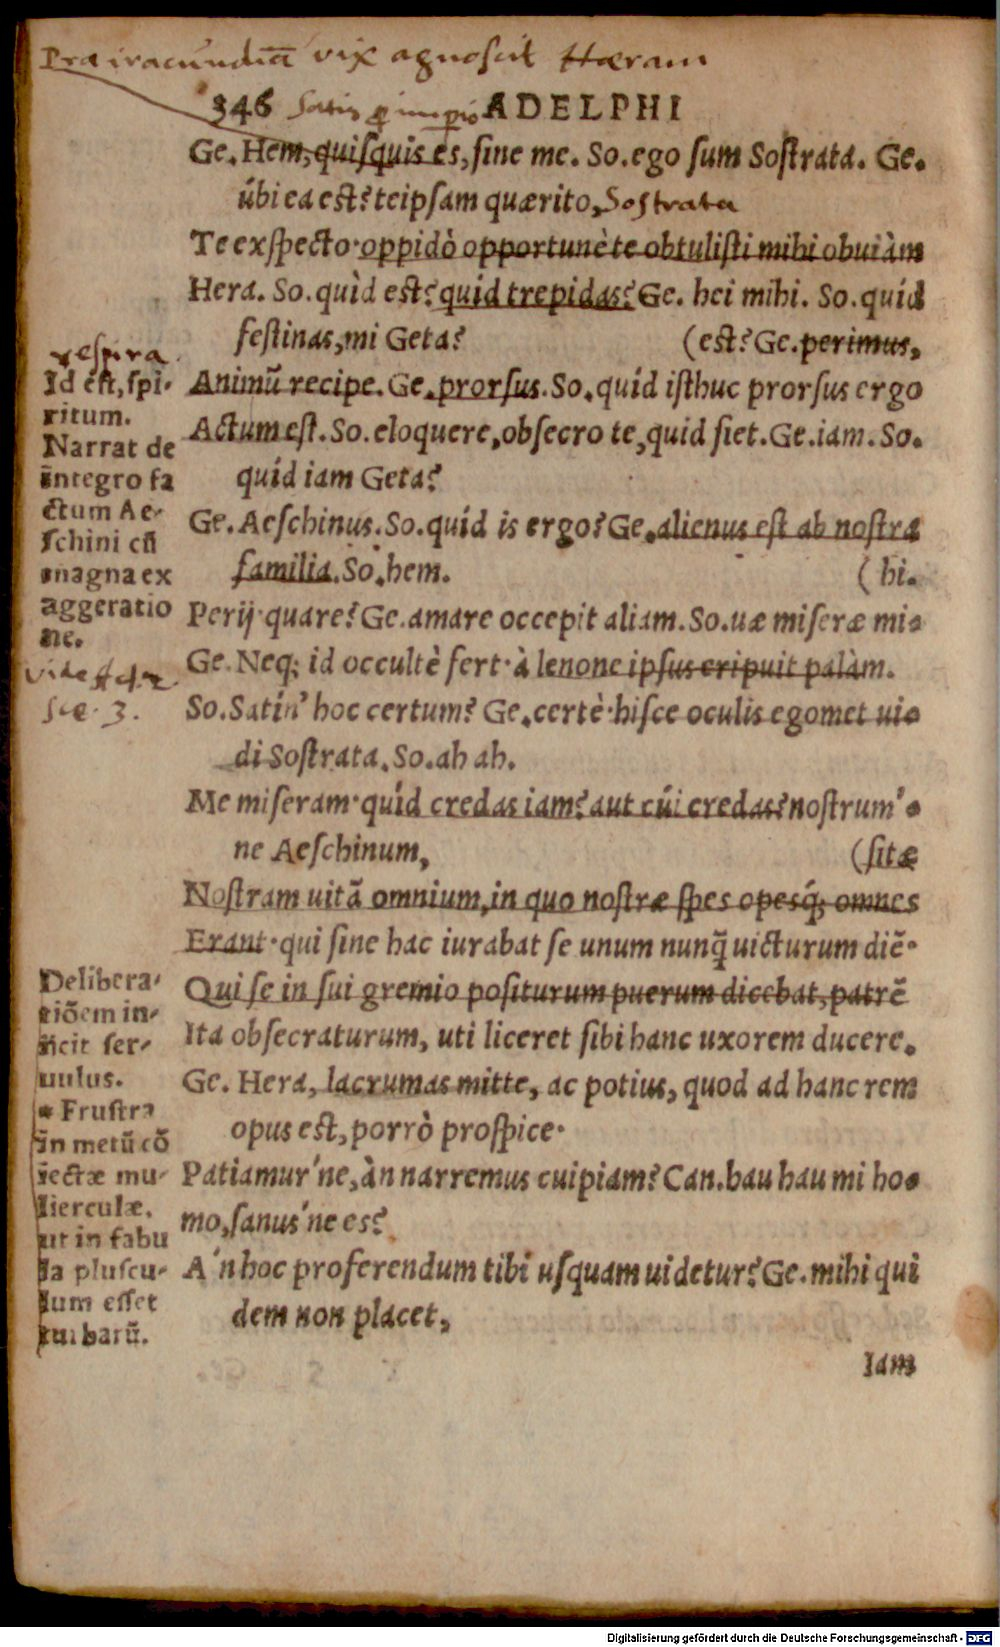 Præ iracundiā vix agnoscit Haeram
346 Satis ꝓ imperio ADELPHI
Ge. Hem, quiſquis es, ſine me. So. ego ſum Soſtrata. Ge.
úbi ea eſt? teipſam quærito, Sostrata
Te exſpecto· oppidò opportunè te obtuliſti mihi obuiàm
Hera. So. quìd eſt? quid trepidas? Ge. hei mihi. So. quid
feſtinas, mi Geta? (eſt? Ge. perimus,
respira
Id eſt, ſpi-
ritum.
Animū recipe. Ge. prorſus. So. quíd iſthuc prorſus ergo
Actum eſt. So. eloquere, obſecro te, quid ſiet. Ge. iam. So.
quíd iam Geta?
Narrat de
īntegro fa
ctum Ae-
ſchini cū
magna ex
aggeratio
ne.
Ge. Aeſchinus. So. quíd is ergo? Ge. alienus eſt ab noſtra
familia. So. hem. (hi.
Perij· quare? Ge. amare occepit aliam. So. uæ miſeræ mi-
Ge. Neq; id occultè fert· à lenone ipſus eripuit palàm.
Vide Act. 2
Sce. 3.
So. Satín' hoc certum? Ge. certè· hiſce oculis egomet ui-
di Soſtrata. So. ah ah.
Me miſeram· quíd credas iam? aut cúi credas? noſtrum'-
ne Aeſchinum, (ſitæ
Noſtram uitā omnium, in quo noſtræ ſpes opesq́; omnes
Erant· qui ſine hac iurabat ſe unum nunq̄ uicturum diē·
Qui ſe in ſui gremio poſiturum puerum dicebat, patrē
Ita obſecraturum, uti liceret ſibi hanc uxorem ducere.
Delibera-
tiōem in-
ijcit ſer-
uulus.
Ge. Hera, lacrumas mitte, ac potius, quod ad hanc rem
opus eſt, porrò proſpice·
* Fruſtra
in metū cō
iectæ mu-
lierculæ,
ut in fabu
la pluſcu-
lum eſſet
turbarū.
Patiamur'ne, àn narremus cuipiam? Can. hau hau mi ho-
mo, ſanus'ne es?
A'n hoc proferendum tibi uſquam uidetur? Ge. mihi qui
dem non placet,
Iam
Digitalisierung gefördert durch die Deutsche Forschungsgemeinschaft - DFG